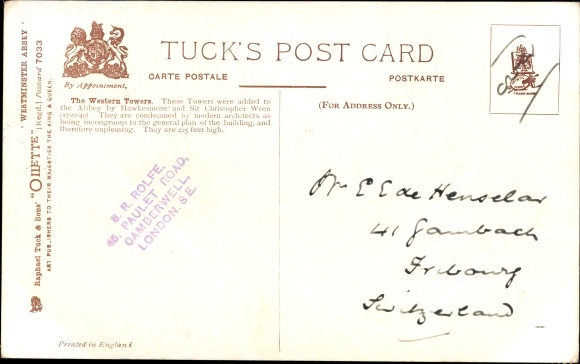 TUCK'S POST CARD
By Appointment.
CARTE POSTALE
POSTKARTE
The Western Towers. These Towers were added to
the Abbey by Hawkesmore and Sir Christopher Wren
(1722-40). They are condemned by modern architects as
being incongruous to the general plan of the building, and
therefore unpleasing. They are 225 feet high.
(FOR ADDRESS ONLY.)
S. R. ROLFE,
45, PAULET ROAD,
CAMBERWELL,
LONDON. S.E.
E E de Henselar
41 Gambach
Fribourg
Switzerland
"WESTMINSTER ABBEY"
Raphael Tuck & Sons' "OILETTE" [Regd.] Postcard 7033
ART PUBLISHERS TO THEIR MAJESTIES THE KING & QUEEN.
Printed in England